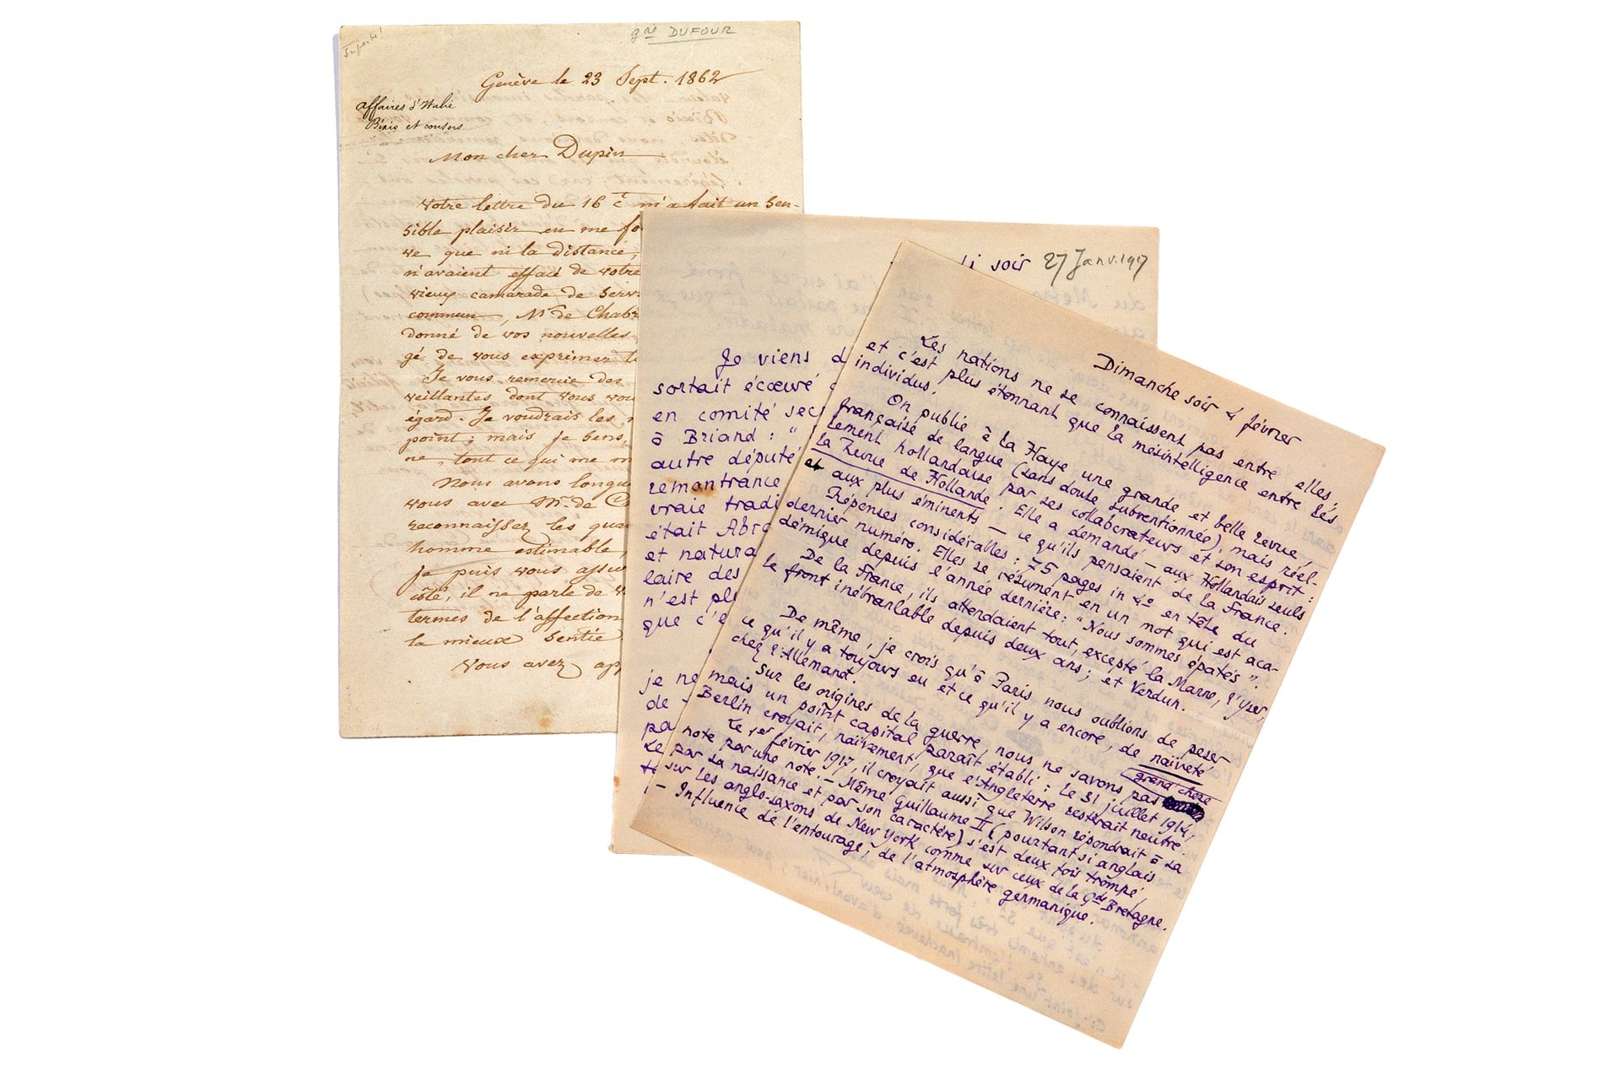 gal DUFOUR
Genève le 23 Sept. 1862
affaires d'Italie
Bixio et consors
Mon cher Dupin
Votre lettre du 16 ct m'a fait un sen-
sible plaisir en me fo
ve que ni la distance,
n'avaient effacé de votre
vieux camarade de serv
commun, Mr de Chab
donné de vos nouvelles
gé de vous exprimer
Je vous remercie des
veillantes dont vous vou
égard. Je voudrais les
point; mais je sens,
ne, tout ce qui me m
Nous avons longue
vous avec Mr. de C
reconnaissez les qua
homme estimable,
Je puis vous assu
été, il ne parle de v
termes de l'affection
la mieux sentie
Vous avez ap
di soir 27 Janv. 1917
Je viens d
sortait écœuré
en comité sec
à Briand : "
autre député
remontrance
vraie tradi
était Abra
et natura
laire des
n'est pl
que c'e
je ne
de
pa
Le
Dimanche soir 4 février
Les nations ne se connaissent pas entre elles,
et c'est plus étonnant que la mésintelligence entre les
individus.
On publie à la Haye une grande et belle revue
française de langue (sans doute subventionnée), mais réel-
lement hollandaise par ses collaborateurs et son esprit :
la Revue de Hollande. Elle a demandé — aux Hollandais seuls
et aux plus éminents — ce qu'ils pensaient de la France.
Réponses considérables : 75 pages in 4° en tête du
dernier numéro. Elles se résument en un mot qui est aca-
démique depuis l'année dernière : "Nous sommes épatés".
De la France, ils attendaient tout, excepté la Marne, l'Yser,
le front inébranlable depuis deux ans ; et Verdun.
De même, je crois qu'à Paris nous oublions de peser
ce qu'il y a toujours eu et ce qu'il y a encore, de naïveté
chez l'Allemand.
Sur les origines de la guerre, nous ne savons pas grand chose
mais un point capital paraît établi : le 31 juillet 1914,
Berlin croyait, naïvement, que l'Angleterre resterait neutre.
Le 1er février 1917, il croyait aussi que Wilson répondrait à sa
note par une note. — Même Guillaume II (pourtant si anglais
par sa naissance et par son caractère) s'est deux fois trompé,
sur les anglo-saxons de New York comme sur ceux de la Gde Bretagne.
— Influence de l'entourage ; de l'atmosphère germanique.